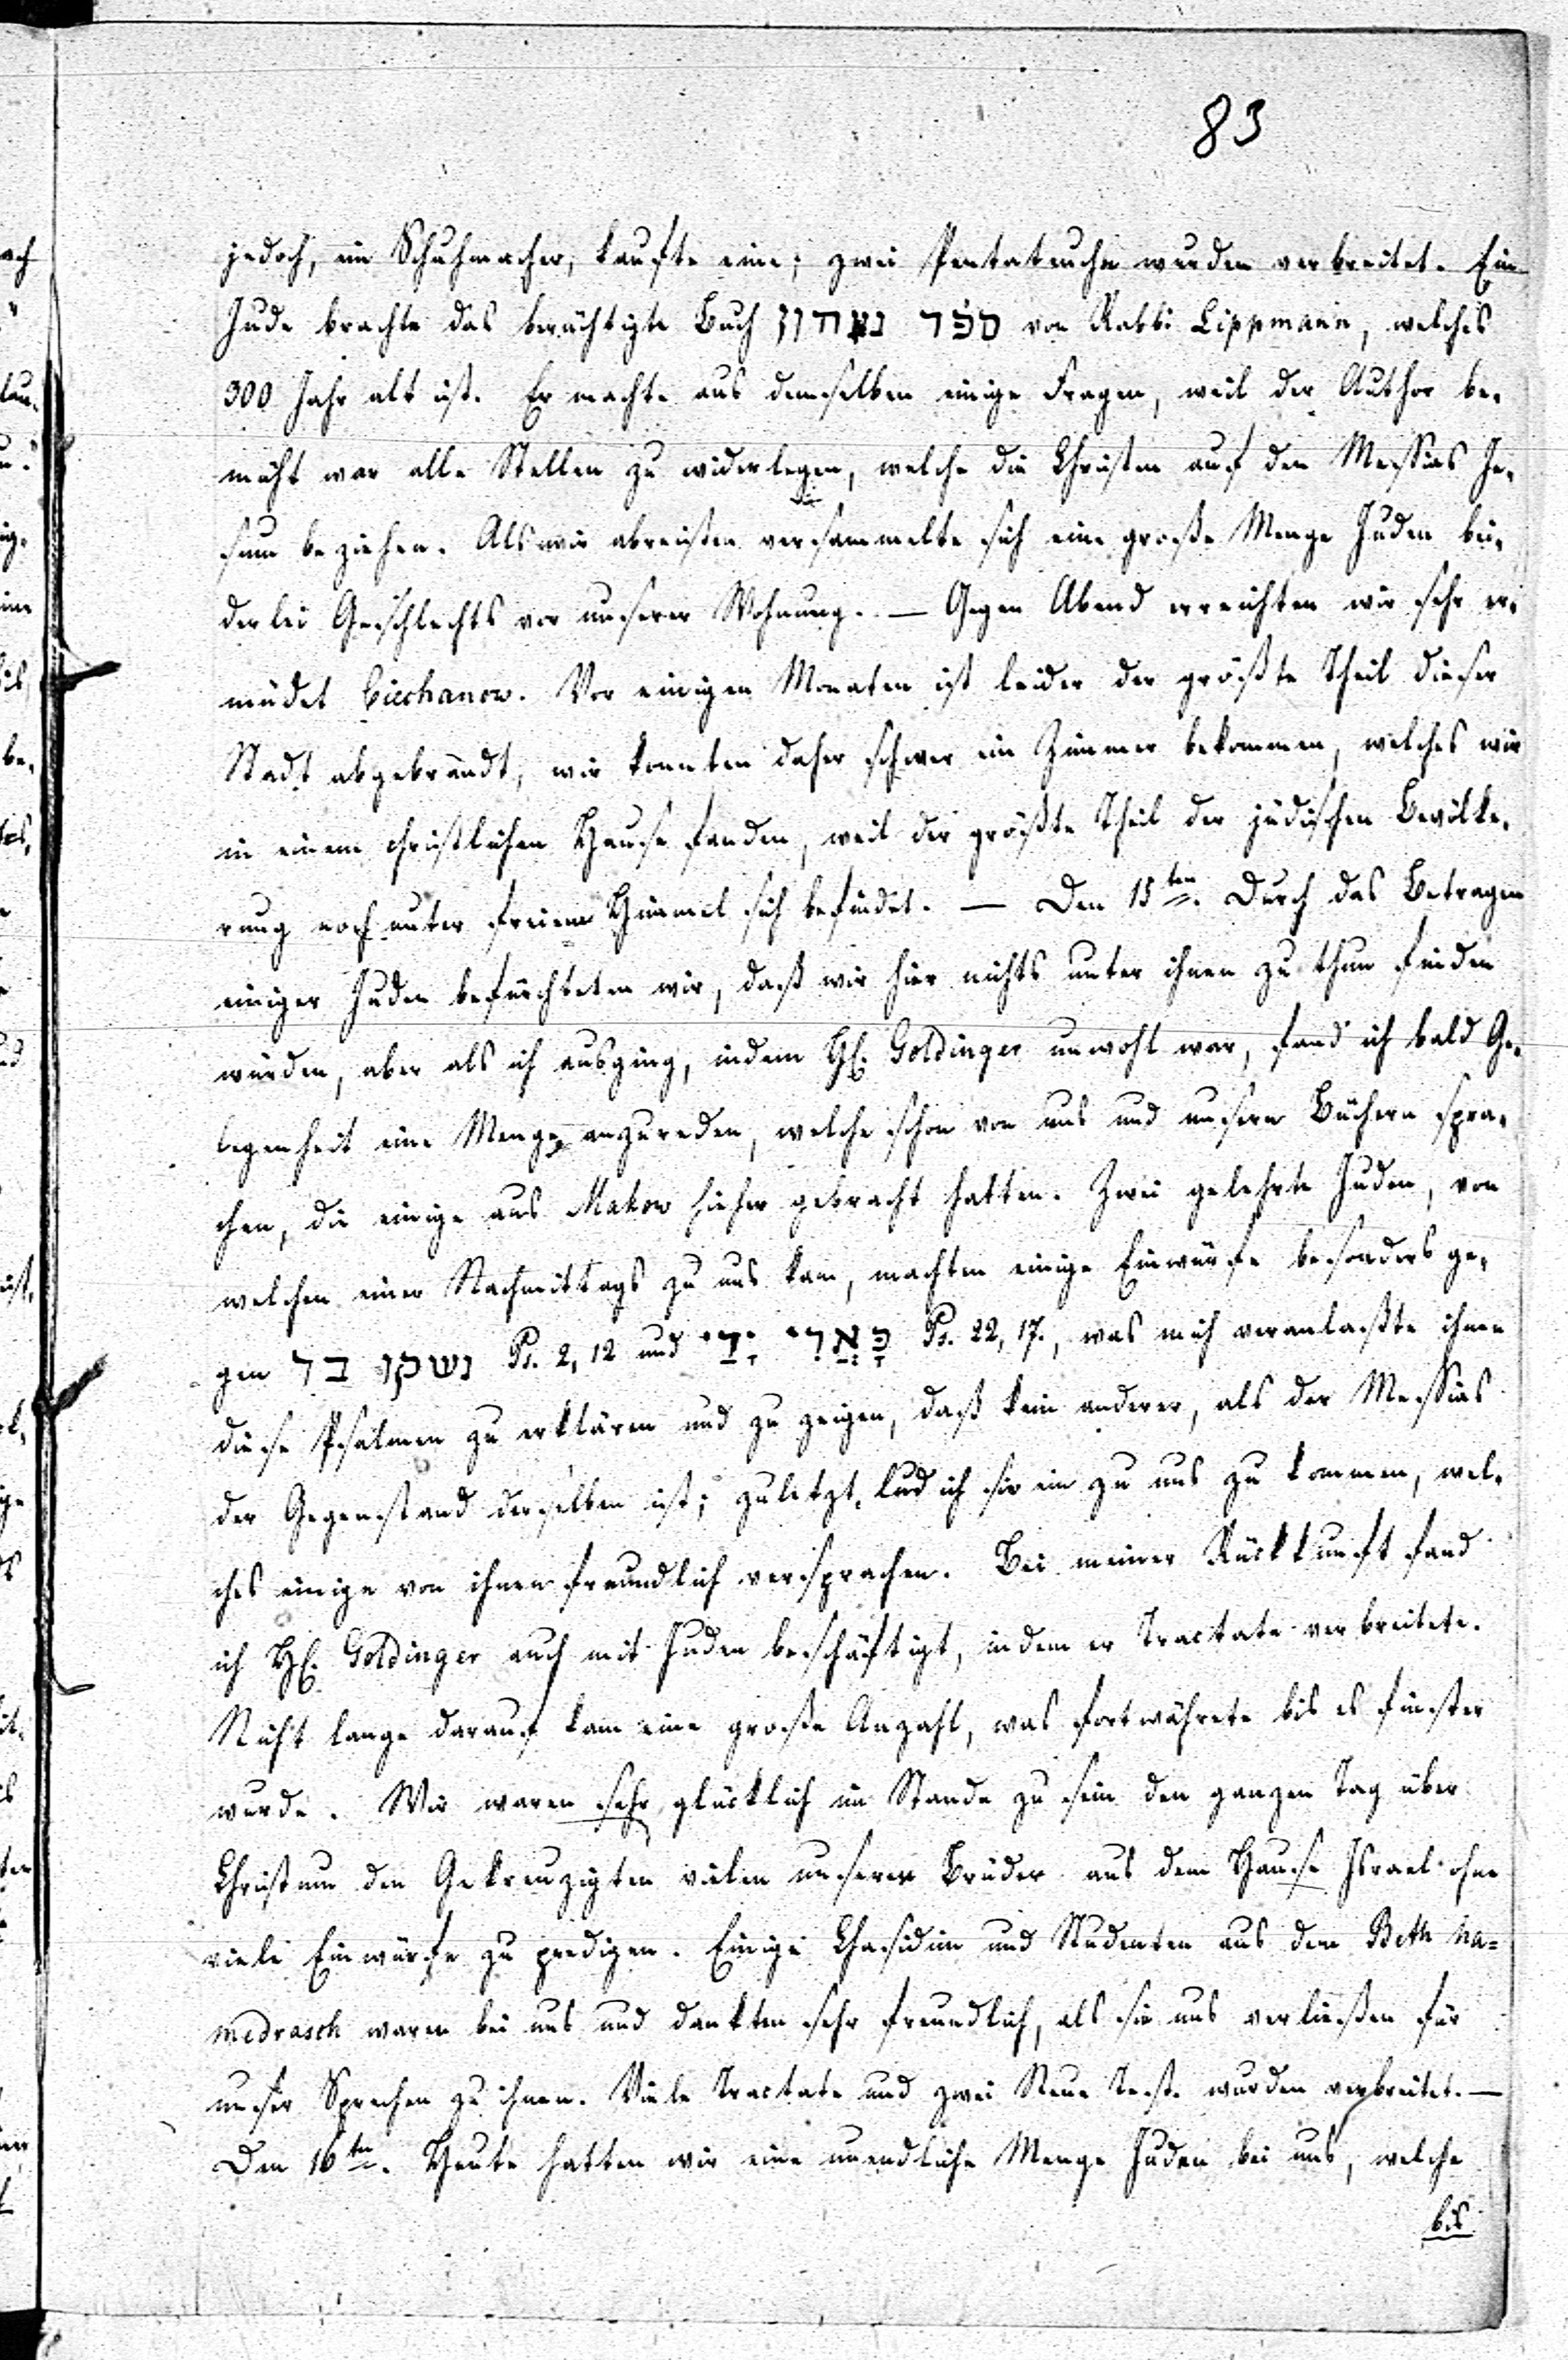 83
jedoch, ein Schuhmacher, kaufte eine; zwei Pentateuche wurden verbreitet. Ein
Jude brachte das berüchtigte Buch ספר נצחון von Rabbi Lippmann, welches
300 Jahr alt ist. Er machte aus demselben einige Fragen, weil der Author be-
müht war alle Stellen zu widerlegen, welche die Christen auf den Messias Je-
sum beziehen. Als wir abreisten versammelte sich eine große Menge Juden bei-
derlei Geschlechts vor unserer Wohnung. — Gegen Abend erreichten wir sehr er-
müdet Ciechanow. Vor einigen Monaten ist leider der größte Theil dieser
Stadt abgebrandt, wir konnten daher schwer ein Zimmer bekommen, welches wir
in einem christlichen Hause fanden, weil der größte Theil der jüdischen Bevölke-
rung noch unter freiem Himmel sich befindet. — Den 15ten. Durch das Betragen
einiger Juden befürchteten wir, daß wir hier nichts unter ihnen zu thun finden
würden, aber als ich ausging, indem H. Goldinger unwohl war, fand ich bald Ge-
legenheit eine Menge anzureden, welche schon von uns und unsern Büchern spra-
chen, die einige aus Makow hieher gebracht hatten. Zwei gelehrte Juden, von
welchen einer Nachmittags zu uns kam, machten einige Einwürfe besonders ge-
gen נשקו בר Ps. 2, 12 und כָּאֲרִי יָדַי Ps. 22, 17., was mich veranlaßte ihnen
diese Psalmen zu erklären und zu zeigen, daß kein anderer, als der Messias
der Gegenstand derselben ist; zuletzt lud ich sie ein zu uns zu kommen, wel-
ches einige von ihnen freundlich versprachen. Bei meiner Rückkunft fand
ich H. Goldinger auch mit Juden beschäftigt, indem er Tractate verbreitete.
Nicht lange darauf kam eine große Anzahl, was fortwährete bis es finster
wurde. Wir waren sehr glücklich im Stande zu sein den ganzen Tag über
Christum den Gekreuzigten vielen unserer Brüder aus dem Hause Israel ohne
viele Einwürfe zu predigen. Einige Chasidim und Studenten aus dem Beth ha-
medrasch waren bei uns und dankten sehr freundlich, als sie uns verließen für
unser Sprechen zu ihnen. Viele Tractate und zwei Neue Test. wurden verbreitet. —
Den 16ten. Heute hatten wir eine unendliche Menge Juden bei uns, welche
bis